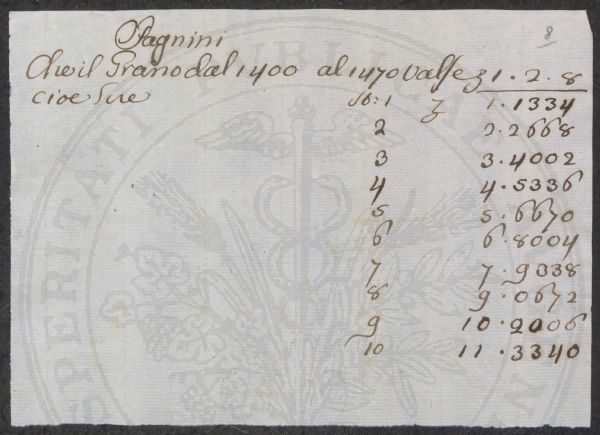 8
Pagnini
Che il Grano dal 1400 al 1470 valse ʒ 1.2.8
cioè Lire
St: 1 ʒ 1.1334
2 2.2668
3 3.4002
4 4.5336
5 5.6670
6 6.8004
7 7.9338
8 9.0672
9 10.2006
10 11.3340
SPERITATI PUBLICAE